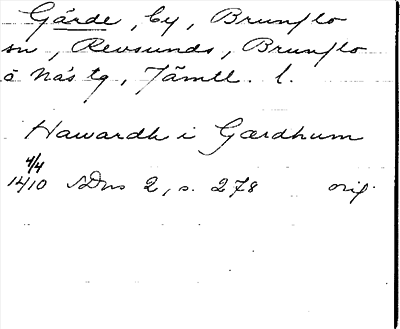 Gärde, by, Brunflo
sn, Revsunds, Brunflo
o Näs tg, Jämtl. l.
Hawardh i Gærdhum
4/4
1410 SDns 2, s. 278 orig.